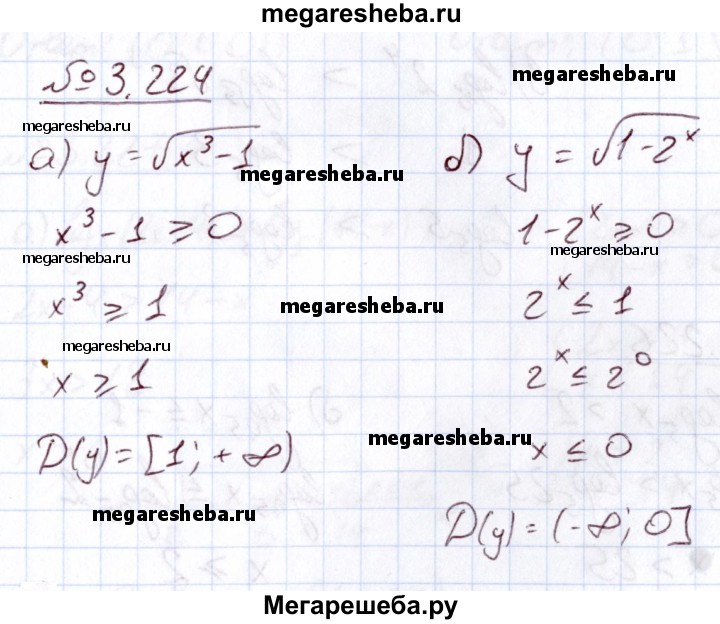 megaresheba.ru
№ 3.224
megaresheba.ru
megaresheba.ru
а) y = √(x³-1)
megaresheba.ru
x³-1 ⩾ 0
megaresheba.ru
x³ ⩾ 1
megaresheba.ru
x ⩾ 1
D(y) = [1; +∞)
megaresheba.ru
б) y = √(1-2ˣ)
1-2ˣ ⩾ 0
megaresheba.ru
megaresheba.ru
2ˣ ≤ 1
2ˣ ≤ 2⁰
megaresheba.ru
x ≤ 0
D(y) = (-∞; 0]
Мегарешеба.ру